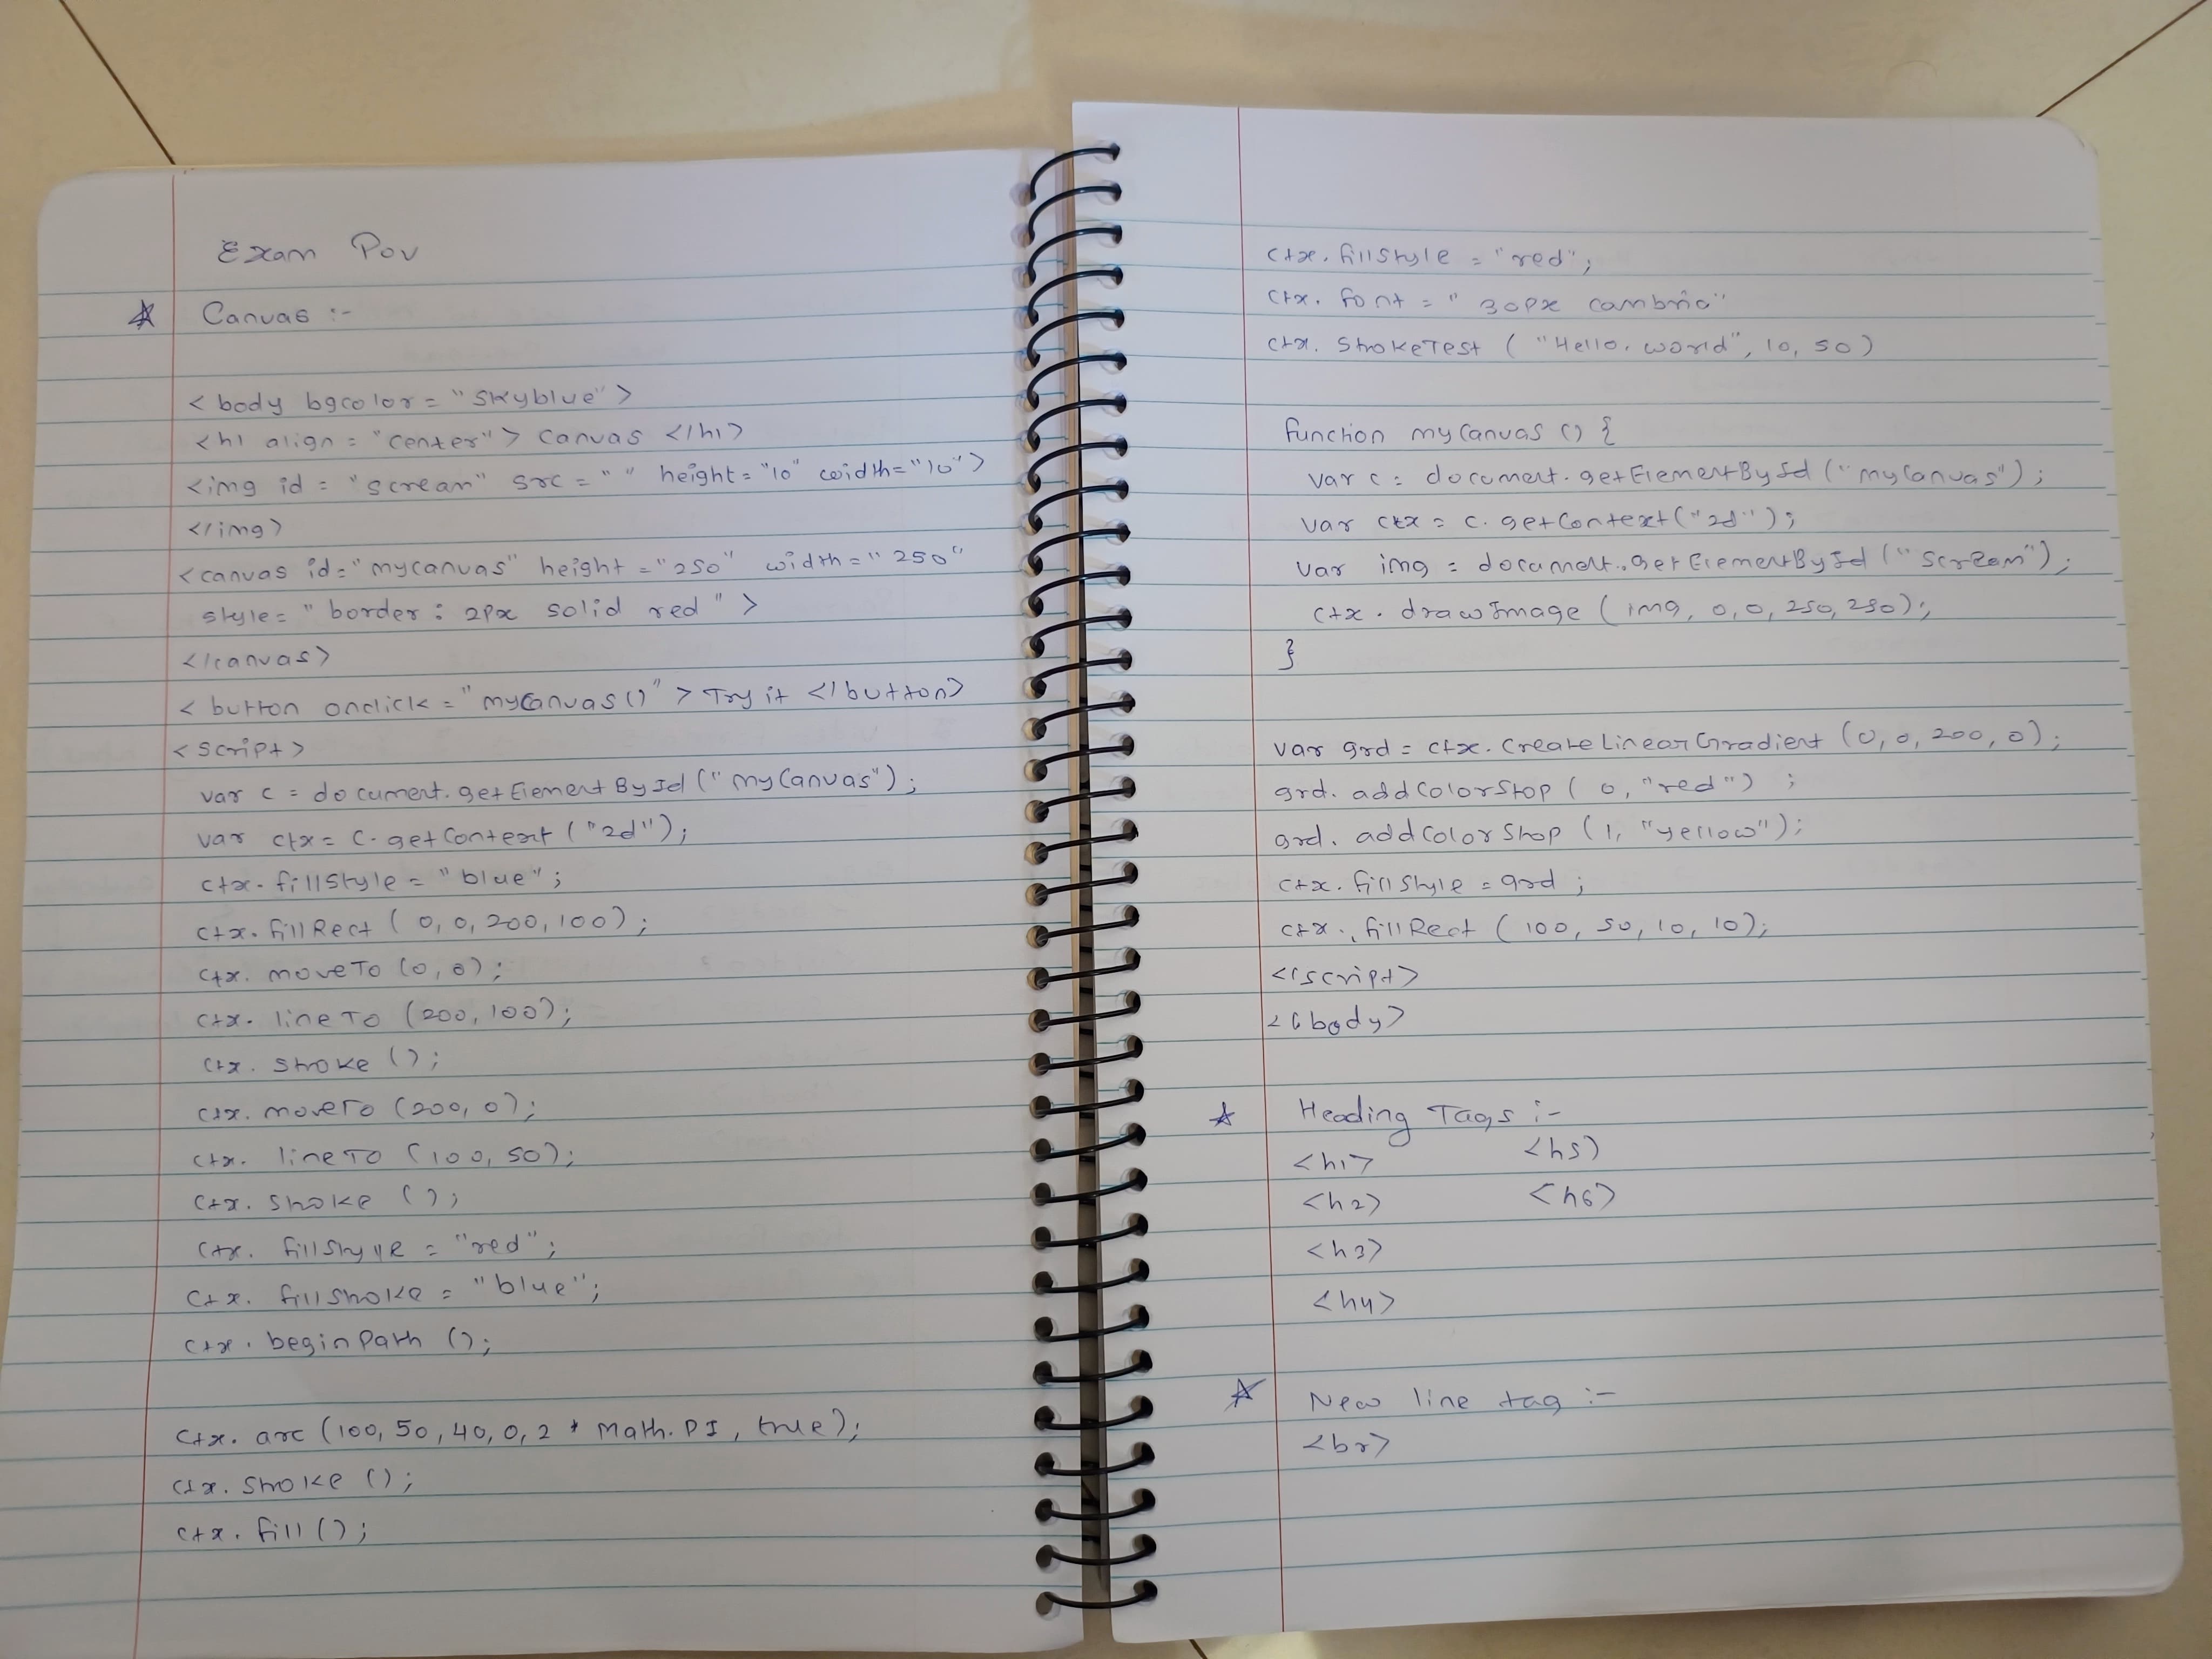 Exam Pov
Canvas :-
<body bgcolor = "skyblue">
<h1 align = "center"> Canvas </h1>
<img id = "scream" src = " " height = "10" width = "10">
</img>
<canvas id = "mycanvas" height = "250" width = "250"
style = "border : 2px solid red">
</canvas>
<button onclick = "myCanvas()"> Try it </button>
<script>
var c = document.getElementById ("myCanvas");
var ctx = c.getContext ("2d");
ctx.fillStyle = "blue";
ctx.fillRect (0, 0, 200, 100);
ctx.moveTo (0, 0);
ctx.lineTo (200, 100);
ctx.stroke ();
ctx.moveTo (200, 0);
ctx.lineTo (100, 50);
ctx.stroke ();
ctx.fillStyle = "red";
ctx.fillstroke = "blue";
ctx.beginPath ();
ctx.arc (100, 50, 40, 0, 2 * Math.PI, true);
ctx.stroke ();
ctx.fill ();
ctx.fillStyle = "red";
ctx.font = "30px cambria"
ctx.strokeTest ("Hello. world", 10, 50)
function myCanvas () {
var c = document.getElementById ("myCanvas");
var ctx = c.getContext ("2d");
var img = document.getElementById ("scream");
ctx.drawImage (img, 0, 0, 250, 250);
}
var grd = ctx.createLinearGradient (0, 0, 200, 0);
grd.addColorStop (0, "red") ;
grd.addColorStop (1, "yellow");
ctx.fillStyle = grd ;
ctx.fillRect (100, 50, 10, 10);
</script>
</body>
Heading Tags :-
<h1> <h5>
<h2> <h6>
<h3>
<h4>
New line tag :-
<br>